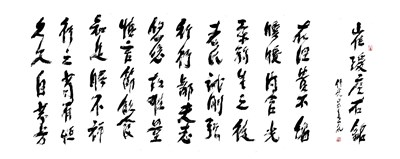 崔瑗座右銘
在涅貴不緇
曖曖内含光
柔弱生之徒
老氏誡剛強
行行鄙夫志
悠悠故難量
慎言節飲食
知足勝不祥
行之苟有恒
久久自芬芳